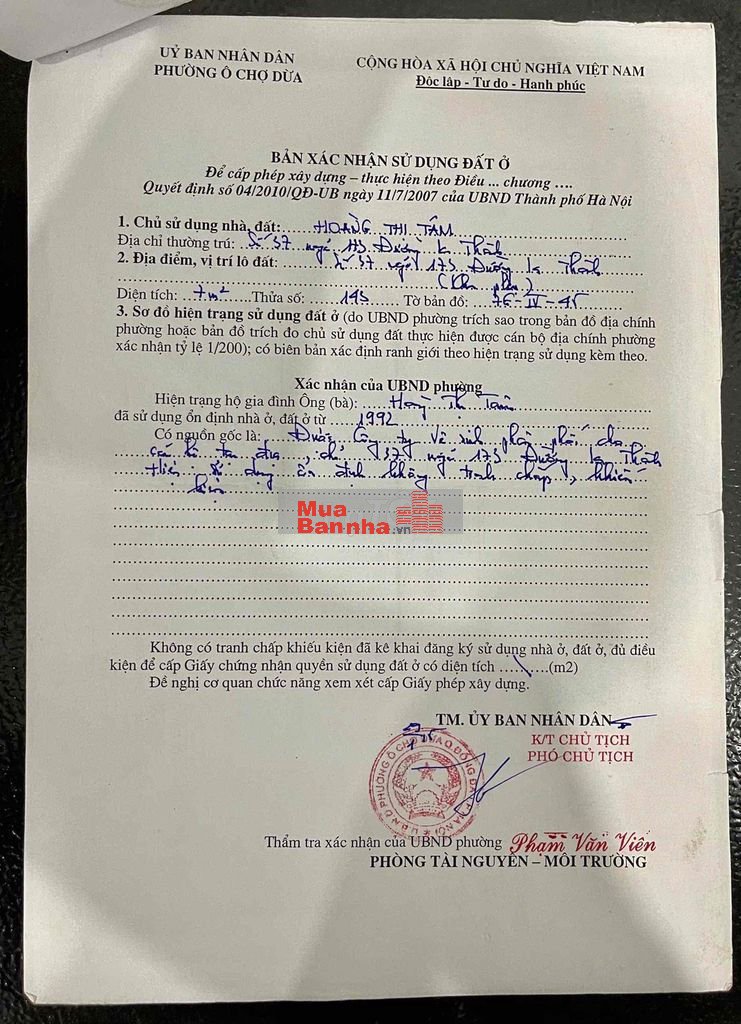 UỶ BAN NHÂN DÂN
PHƯỜNG Ô CHỢ DỪA
CỘNG HÒA XÃ HỘI CHỦ NGHĨA VIỆT NAM
Độc lập - Tự do - Hạnh phúc
BẢN XÁC NHẬN SỬ DỤNG ĐẤT Ở
Để cấp phép xây dựng – thực hiện theo Điều ... chương ....
Quyết định số 04/2010/QĐ-UB ngày 11/7/2007 của UBND Thành phố Hà Nội
1. Chủ sử dụng nhà, đất: HOÀNG THỊ TÂM
Địa chỉ thường trú: Số 37 ngõ 173 Đường La Thành
2. Địa điểm, vị trí lô đất: Số 37 ngõ 173 Đường La Thành
Diện tích: 7m² Thửa số: 143 Tờ bản đồ: 7G-IV-45
3. Sơ đồ hiện trạng sử dụng đất ở (do UBND phường trích sao trong bản đồ địa chính
phường hoặc bản đồ trích đo chủ sử dụng đất thực hiện được cán bộ địa chính phường
xác nhận tỷ lệ 1/200); có biên bản xác định ranh giới theo hiện trạng sử dụng kèm theo.
Xác nhận của UBND phường
Hiện trạng hộ gia đình Ông (bà): Hoàng Thị Tâm
đã sử dụng ổn định nhà ở, đất ở từ 1992
Có nguồn gốc là: Được Công ty Vệ sinh phân phối cho
37 ngõ 173 Đường La Thành
sử dụng ổn định không tranh chấp, khiếu
kiện
Mua
Bannha.vn
Không có tranh chấp khiếu kiện đã kê khai đăng ký sử dụng nhà ở, đất ở, đủ điều
kiện để cấp Giấy chứng nhận quyền sử dụng đất ở có diện tích ..........(m2)
Đề nghị cơ quan chức năng xem xét cấp Giấy phép xây dựng.
TM. ỦY BAN NHÂN DÂN
K/T CHỦ TỊCH
PHÓ CHỦ TỊCH
Thẩm tra xác nhận của UBND phường Phạm Văn Viên
PHÒNG TÀI NGUYÊN – MÔI TRƯỜNG